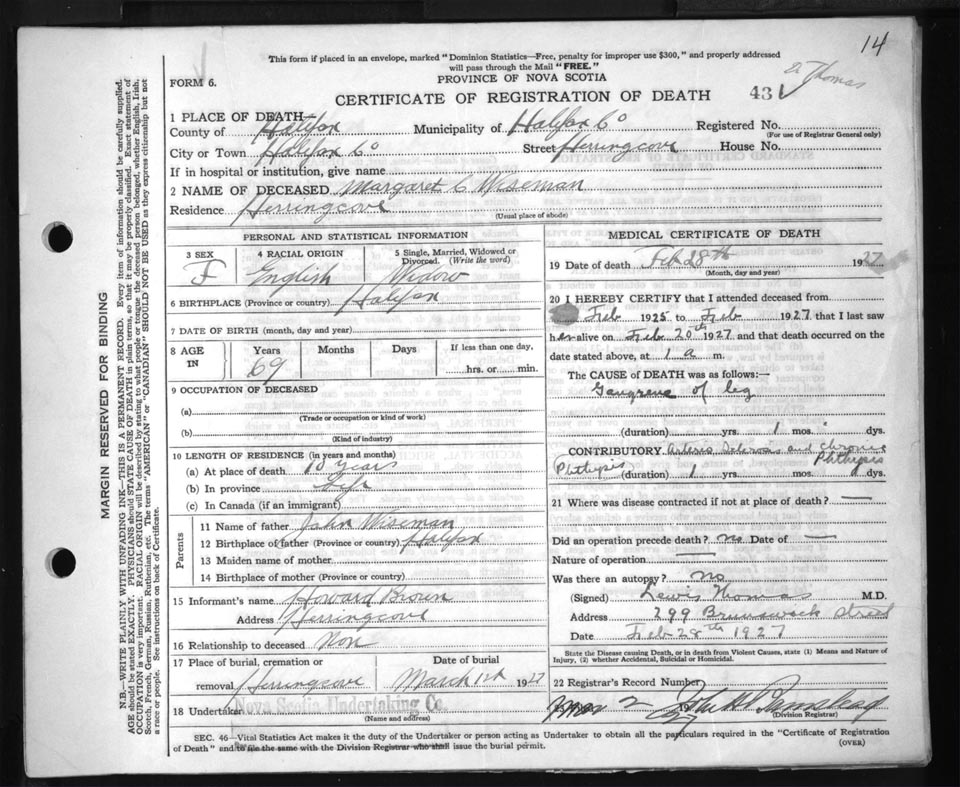 14
This form if placed in an envelope, marked "Dominion Statistics—Free, penalty for improper use $300," and properly addressed
will pass through the Mail "FREE."
FORM 6.
PROVINCE OF NOVA SCOTIA
Thomas
CERTIFICATE OF REGISTRATION OF DEATH
431
1 PLACE OF DEATH—
County of Halifax Municipality of Halifax Co Registered No.
(For use of Registrar General only)
City or Town Halifax Co Street Herringcove House No.
If in hospital or institution, give name
2 NAME OF DECEASED Margaret C Wiseman
Residence Herringcove
(Usual place of abode)
PERSONAL AND STATISTICAL INFORMATION
3 SEX 4 RACIAL ORIGIN 5 Single, Married, Widowed or
Divorced. (Write the word)
F English Widow
6 BIRTHPLACE (Province or country) Halifax
7 DATE OF BIRTH (month, day and year)
8 AGE IN Years Months Days If less than one day,
69 hrs. or min.
9 OCCUPATION OF DECEASED
(a)
(Trade or occupation or kind of work)
(b)
(Kind of industry)
10 LENGTH OF RESIDENCE (in years and months)
(a) At place of death 10 years
(b) In province Life
(c) In Canada (if an immigrant)
Parents
11 Name of father John Wiseman
12 Birthplace of father (Province or country) Halifax
13 Maiden name of mother
14 Birthplace of mother (Province or country)
15 Informant's name Howard Brown
Address Herringcove
16 Relationship to deceased Non
17 Place of burial, cremation or Date of burial
removal Herringcove March 1st 1927
18 Undertaker Nova Scotia Undertaking Co.
(Name and address)
MEDICAL CERTIFICATE OF DEATH
19 Date of death Feb 28th 1927
(Month, day and year)
20 I HEREBY CERTIFY that I attended deceased from
Feb 1925 to Feb 1927 that I last saw
her alive on Feb 20th 1927 and that death occurred on the
date stated above, at 1 a m.
The CAUSE of DEATH was as follows:—
Gangrene of leg
(duration) yrs. 1 mos. dys.
CONTRIBUTORY Arterio Sclerosis and chronic
Phthisis
Phthisis (duration) 1 yrs. mos. dys.
21 Where was disease contracted if not at place of death? —
Did an operation precede death? no Date of —
Nature of operation —
Was there an autopsy? no
(Signed) Lewis Thomas M.D.
Address 299 Brunswick Street
Date Feb 28th 1927
State the Disease causing Death, or in death from Violent Causes, state (1) Means and Nature of
Injury, (2) whether Accidental, Suicidal or Homicidal.
22 Registrar's Record Number
Mar 2
(Division Registrar)
SEC. 46—Vital Statistics Act makes it the duty of the Undertaker or person acting as Undertaker to obtain all the particulars required in the "Certificate of Registration
of Death" and to file the same with the Division Registrar who shall issue the burial permit.
(OVER)
MARGIN RESERVED FOR BINDING
N.B.—WRITE PLAINLY WITH UNFADING INK—THIS IS A PERMANENT RECORD. Every item of information should be carefully supplied.
AGE should be stated EXACTLY. PHYSICIANS should STATE CAUSE OF DEATH in plain terms, so that it may be properly classified. Exact statement of
OCCUPATION is very important. RACIAL ORIGIN will be described by stating to what people or tongue the deceased person belonged, whether English, Irish,
Scotch, French, German, Russian, Ruthenian, etc. The terms "AMERICAN" or "CANADIAN" SHOULD NOT BE USED as they express citizenship but not
a race or people. See instructions on back of Certificate.